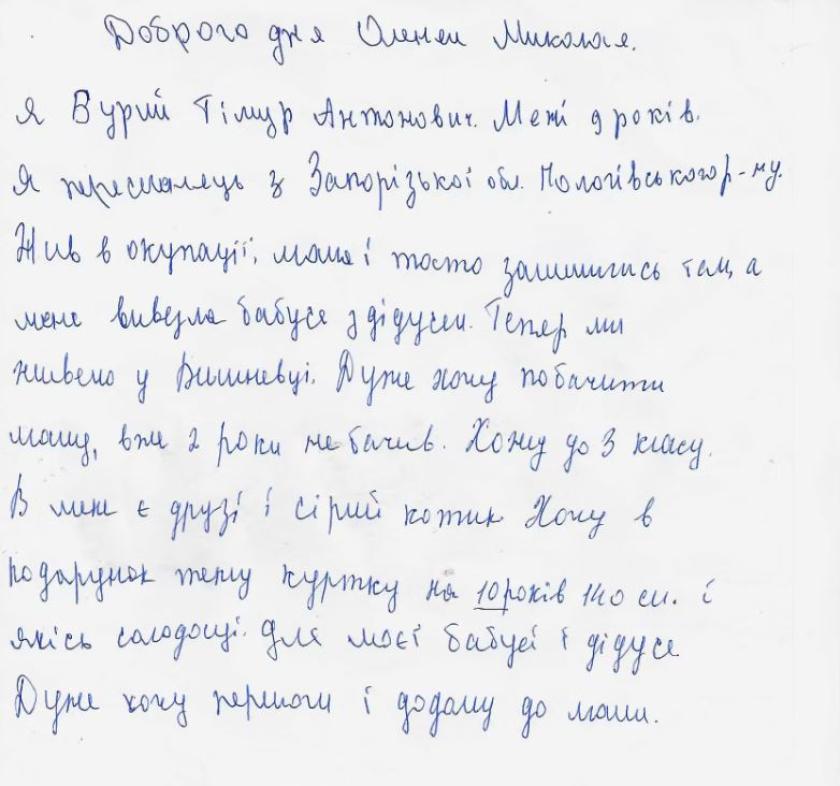 Доброго дня Оленеи Миколая.
Я Вурий Тімур Антонович. Мені 9 років.
Я переселенець з Запорізької обл. Пологівського р-ну.
Жив в окупації, мама і тато залишились там, а
мене вивезла бабуся з дідусем. Тепер ми
живемо у Вишневці. Дуже хочу побачити
маму, вже 2 роки не бачив. Хожу до 3 класу.
В мене є друзі і сірий котик Хочу в
подарунок теплу куртку на 10 років 140 см. і
якісь солодощі. Для моєї бабусі і дідуся
Дуже хочу перемоги і додому до мами.